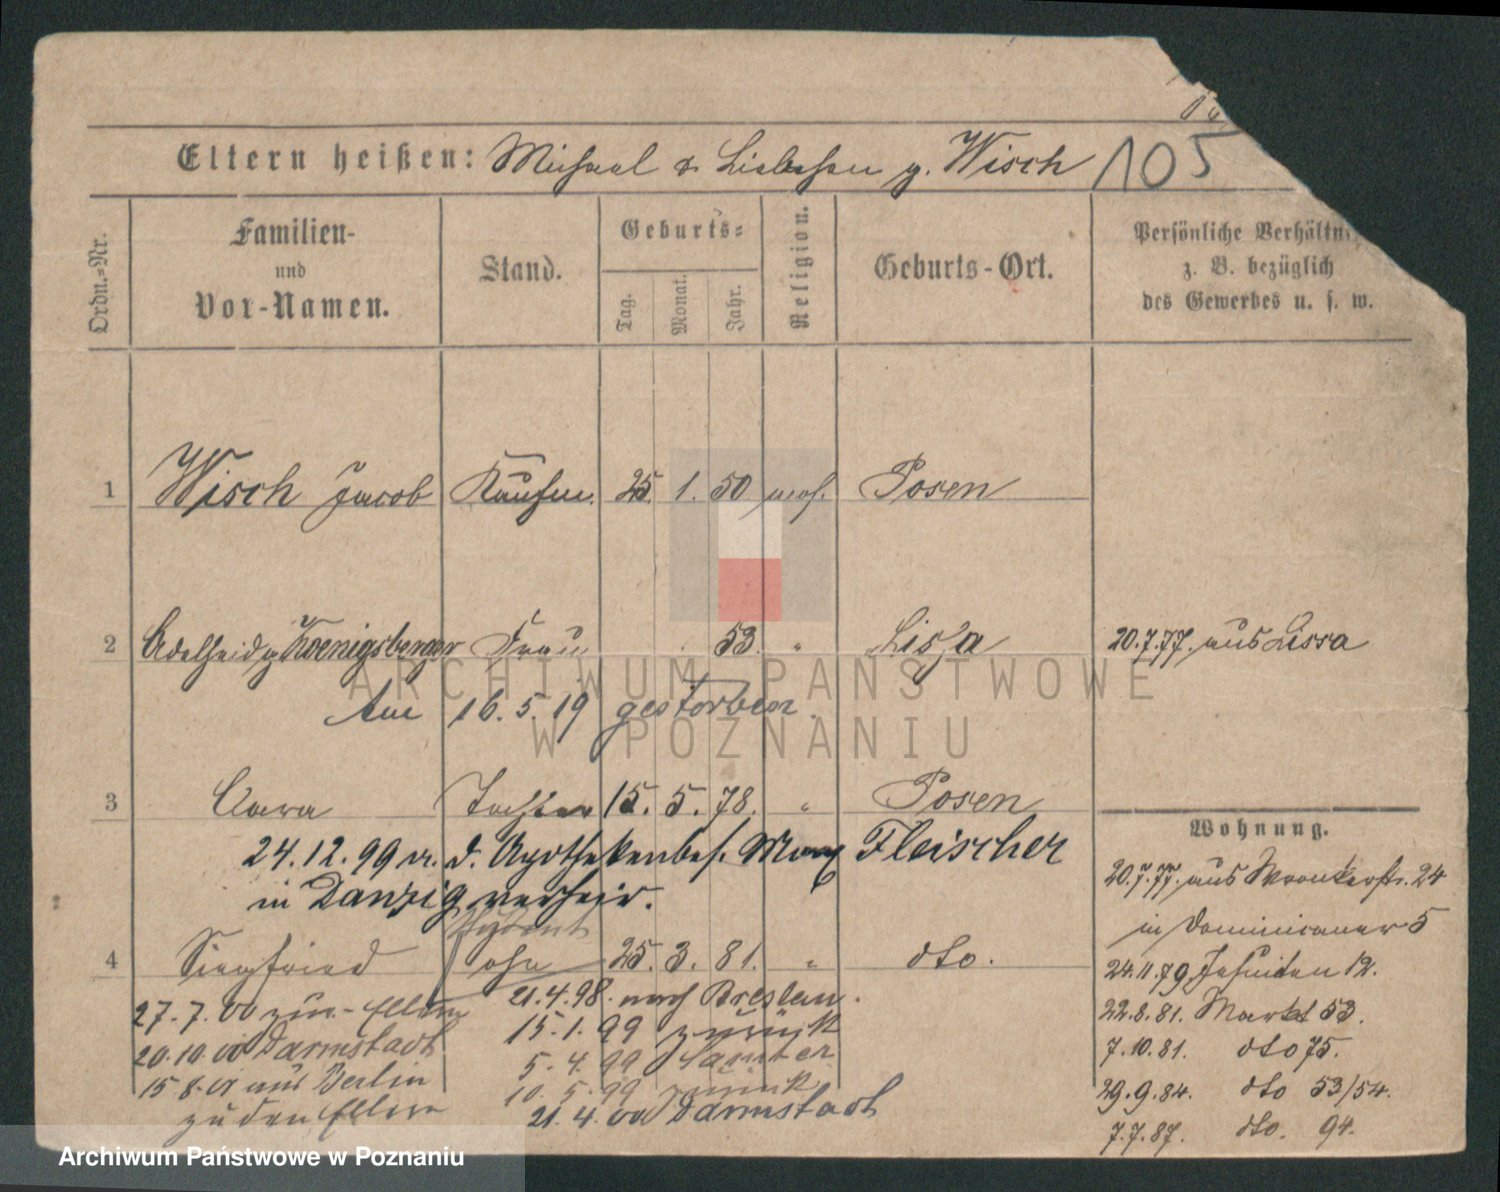 Eltern heißen: Michael & Liebchen g. Wisch 105
Ordn.=Nr.
Familien-
und
Vor-Namen.
Stand.
Geburts=
Tag.
Monat.
Jahr.
Religion.
Geburts-Ort.
Persönliche Verhältni
z. B. bezüglich
des Gewerbes u. s. w.
1 Wisch Jacob Kaufm. 25. 1. 50 mos. Posen
2 Adelheid g. Koenigsberger Frau 53. " Lissa 20.7.77. aus Lissa
Am 16. 5. 19 gestorben.
ARCHIWUM PAŃSTWOWE
W POZNANIU
3 Clara Tochter 15. 5. 78. " Posen
24.12.99 m. d. Apothekenbes. Max Fleischer
in Danzig verheir.
Student
4 Siegfried Sohn 25. 3. 81. " dto.
21.4.98. nach Breslau.
15.1.99 zurück
5.4.99 Samter
10.5.99 zurück
21.4.00 Darmstadt
27.7.00 zur. Eltern
20.10.00 Darmstadt
15.8.01 aus Berlin
zu den Eltern
Wohnung.
20.7.77. aus Wronkerstr. 24
in Dominicaner 5
24.11.79 Jesuiten 12.
22.8.81. Markt 53.
7.10.81. dto 75.
29.9.84. dto 53/54.
7.7.87. dto. 94.
Archiwum Państwowe w Poznaniu